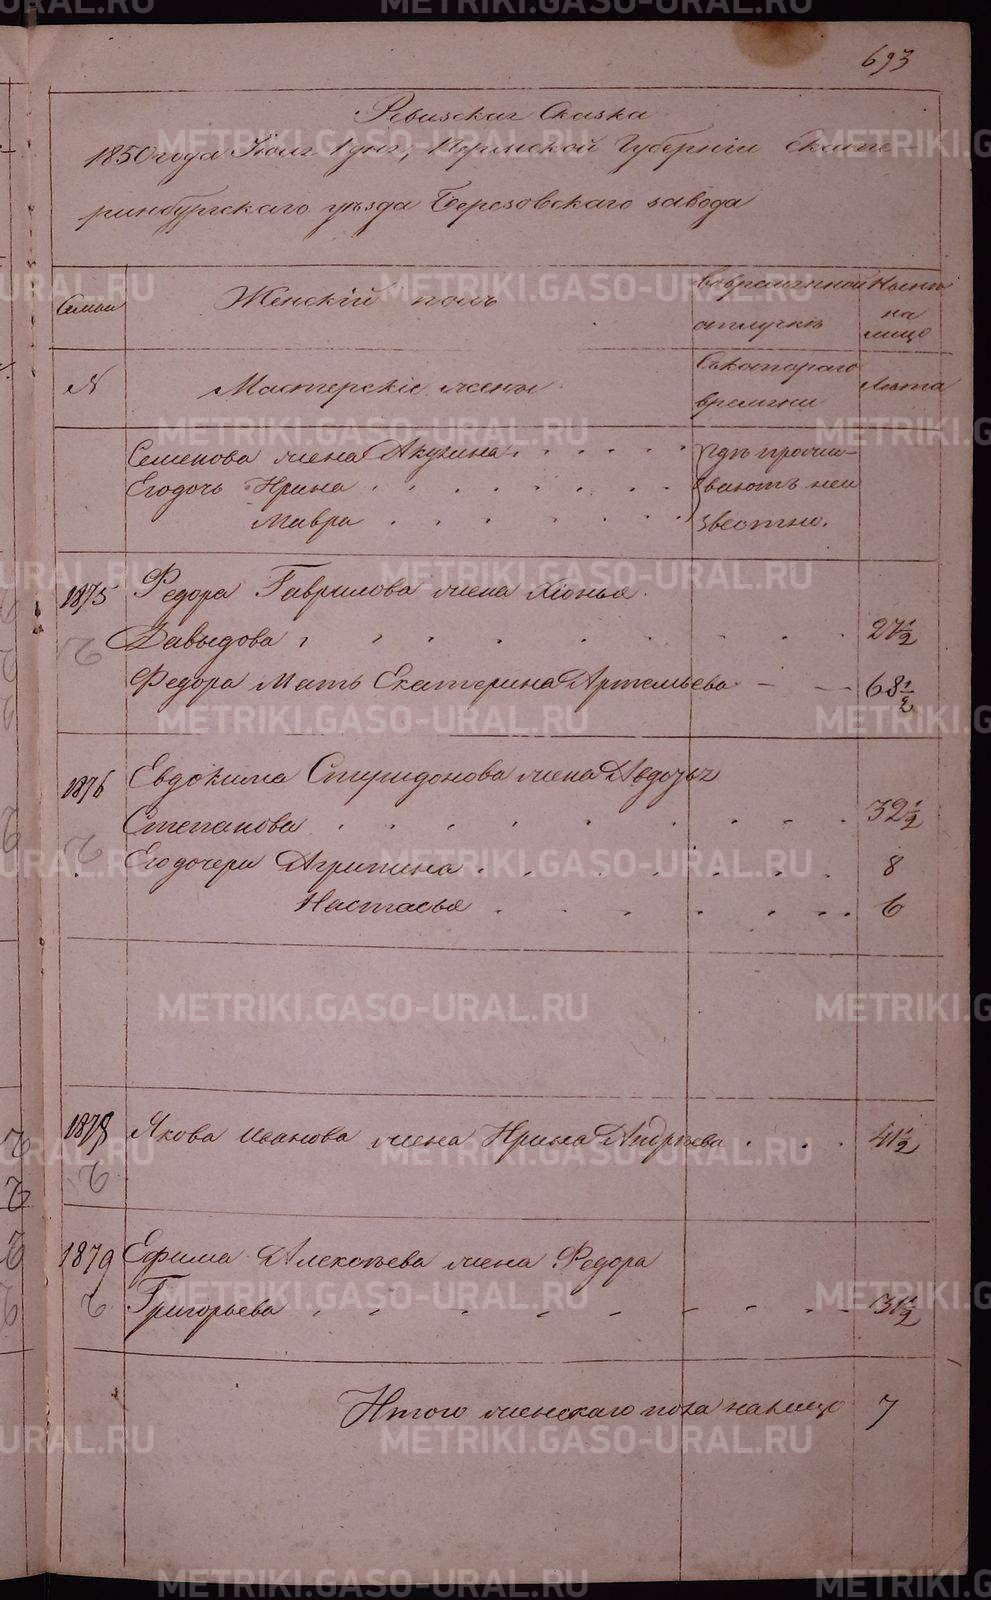 693
Ревизская Сказка
1850 года Июля 1 дня, Пермской Губернии Екате-
ринбургскаго уезда Березовскаго завода
Семьи
Женскій полъ
во временной
отлучкѣ
Нынѣ
на
лицо
N
Мастерскіе жены
Съкотораго
времени
Лѣта
Семенова жена Акулина
Егодочь Ирина
Мавра
гдѣ прожи-
ваютъ неи
звестно.
1875 Федора Гаврилова жена Хіонья
Давыдова 27 1/2
Федора Мать Екатерина Артемьева 68 1/2
1876 Евдокима Спиридонова жена Авдотья
Степанова 32 1/2
Егодочери Агрипина 8
Настасья 6
1878 Якова Иванова жена Ирина Андреева 41 1/2
1879 Ефима Алексѣева жена Федора
Григорьева 31 1/2
Итого женскаго пола налицо 7
METRIKI.GASO-URAL.RU